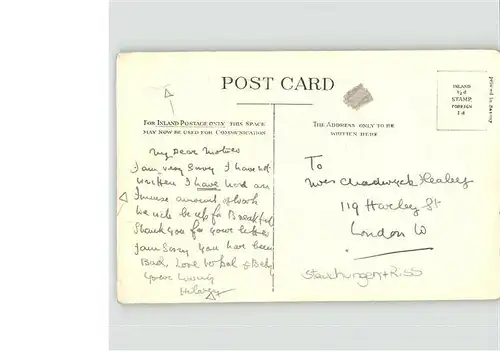 POST CARD
FOR INLAND POSTAGE ONLY, THIS SPACE
MAY NOW BE USED FOR COMMUNICATION
THE ADDRESS ONLY TO BE
WRITTEN HERE
INLAND
½d
STAMP
FOREIGN
1d
My Dear Mother
I am very sorry I have not
written I have had an
Immense amount of work
We will be up for Breakfast
Thank you for your letter
I am Sorry you have been
Bad, Love to &
Your Loving
Hilary
To
Mrs Chadwyck Healey
119 Harley St
London W
Stauchungen + RISS